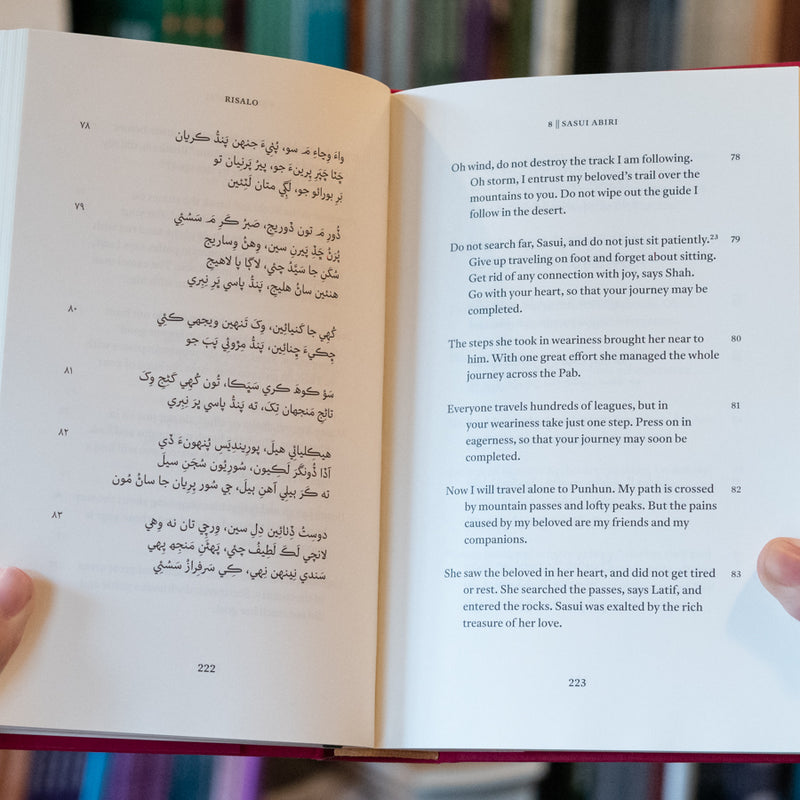 RISALO
٧٨
واءَ وِڃاءِ مَ سو، پُٺيءَ جنهن پَنڌُ ڪريان
چَٽا چَپَرِ پِرينءَ جو، پيرُ پَرتيان تو
بَرِ بورائو جو، لَڳي متان لَٽئين
٧٩
ڏُورِ مَ تون ڏوريج، صَبرُ ڪَرِ مَ سَسُئي
پُرَڻُ ڇَڏِ پَيرنِ سين، وِهڻُ وِساريج
سُکَنِ جا سَيَّدُ چَئي، لاڳا پا لاهيج
هنئين ساڻُ هليج، پَنڌُ پاسي پَرِ نِبري
٨٠
ڪُهي جا گنيائين، وِکَ تَنهين ويجهي ڪئي
چِڪيءَ چِنائين، پَنڌُ مِڙوئي پَٻَ جو
٨١
سَؤ ڪوهَ ڪري سَڀڪا، تُون ڪُهي گڻِج وِکَ
تائِج مَنجهان تِکَ، ته پَنڌُ پاسي پَرَ نِبري
٨٢
هيڪلِيائي هيلَ، پورِينديَس پُنهونءَ ڏي
آڏا ڏُونگرَ لَڪِيون، سُورِيُون سُڄَنِ سيلَ
ته ڪَرَ ٻيلي آهنِ ٻيلَ، جي سُور پِريان جا ساڻُ مُون
٨٣
دوستُ ڏِٺائين دِلِ سين، وِرچي تان نه وِهي
لانچي لَڪَ لَطِيفُ چَئي، پَهڻَنِ مَنجهہ پيهي
سَندي نِينهن نِهي، ڪِي سَرفِرازُ سَسُئي
222
8 || SASUI ABIRI
Oh wind, do not destroy the track I am following. 78
Oh storm, I entrust my beloved's trail over the
mountains to you. Do not wipe out the guide I
follow in the desert.
Do not search far, Sasui, and do not just sit patiently.²³ 79
Give up traveling on foot and forget about sitting.
Get rid of any connection with joy, says Shah.
Go with your heart, so that your journey may be
completed.
The steps she took in weariness brought her near to 80
him. With one great effort she managed the whole
journey across the Pab.
Everyone travels hundreds of leagues, but in 81
your weariness take just one step. Press on in
eagerness, so that your journey may soon be
completed.
Now I will travel alone to Punhun. My path is crossed 82
by mountain passes and lofty peaks. But the pains
caused by my beloved are my friends and my
companions.
She saw the beloved in her heart, and did not get tired 83
or rest. She searched the passes, says Latif, and
entered the rocks. Sasui was exalted by the rich
treasure of her love.
223